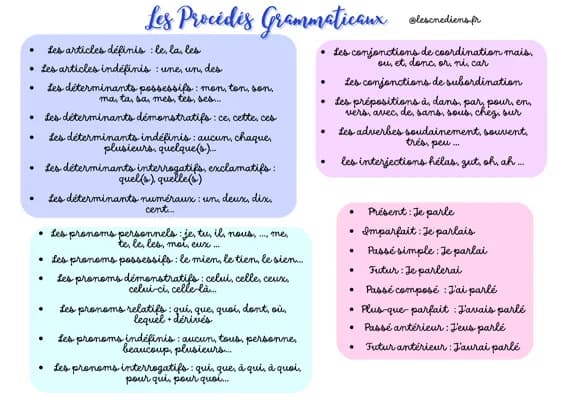 Les Procédés Grammaticaux
@lescnediens.fr
• Les articles définis : le, la, les
• Les articles indéfinis : une, un, des
• Les déterminants possessifs : mon, ton, son,
ma, ta, sa, mes, tes, ses...
• Les déterminants démonstratifs : ce, cette, ces
• Les déterminants indéfinis : aucun, chaque,
plusieurs, quelque(s)...
• Les déterminants interrogatifs, exclamatifs :
quel(s), quelle(s)
• Les déterminants numéraux : un, deux, dix,
cent...
• Les pronoms personnels : je, tu, il, nous, ..., me,
te, le, les, moi, eux ...
• Les pronoms possessifs : le mien, le tien, le sien...
• Les pronoms démonstratifs : celui, celle, ceux,
celui-ci, celle-là...
• Les pronoms relatifs : qui, que, quoi, dont, où,
lequel + dérivés
• Les pronoms indéfinis : aucun, tous, personne,
beaucoup, plusieurs...
• Les pronoms interrogatifs : qui, que, à qui, à quoi,
pour qui, pour quoi...
• Les conjonctions de coordination mais,
ou, et, donc, or, ni, car
• Les conjonctions de subordination
• Les prépositions à, dans, par, pour, en,
vers, avec, de, sans, sous, chez, sur
• Les adverbes soudainement, souvent,
trés, peu ...
• les interjections hélas, zut, oh, ah ...
• Présent : Je parle
• Imparfait : Je parlais
• Passé simple : Je parlai
• Futur : Je parlerai
• Passé composé : J'ai parlé
• Plus-que- parfait : J'avais parlé
• Passé antérieur : J'eus parlé
• Futur antérieur : J'aurai parlé